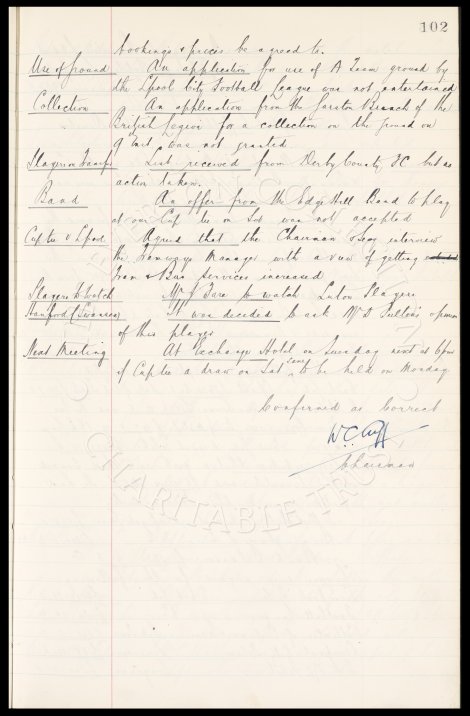 102
bookings & prices be agreed to.
Use of ground An application for use of A Team ground by
the Lpool City Football League was not entertained
Collection An application from the Garston Branch of the
British Legion for a collection on the ground on
9 Inst was not granted
Players on Transfer List received from Derby County FC but no
action taken.
Band An offer from the Edge Hill Band to play
at our Cup tie on Sat was not accepted
Cup tie v Lpool Agreed that the Chairman & Secy interview
the Tramways Manager with a view of getting
Tram & Bus Services increased
Players to Watch Mr J Fare to watch Luton Players
Hanford (Swansea) It was decided to ask Mr D Fulton's opinion
of this player
Next Meeting At Exchange Hotel on Tuesday next at 6pm
if Cup tie a draw on Sat to be held on Monday
Confirmed as Correct
W.C. Cuff
Chairman
CHARITABLE TRUST